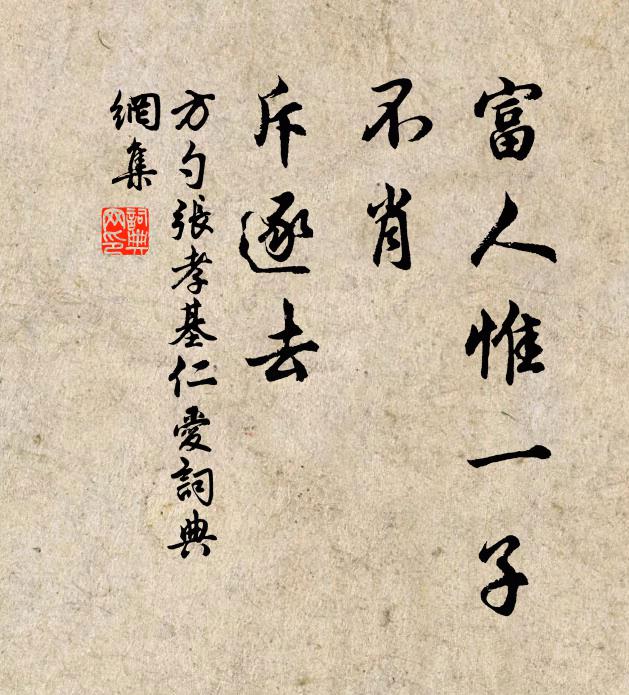 富人惟一子
不肖
斥逐去
方勺張孝基仁愛詞典
網集
詞典
网印